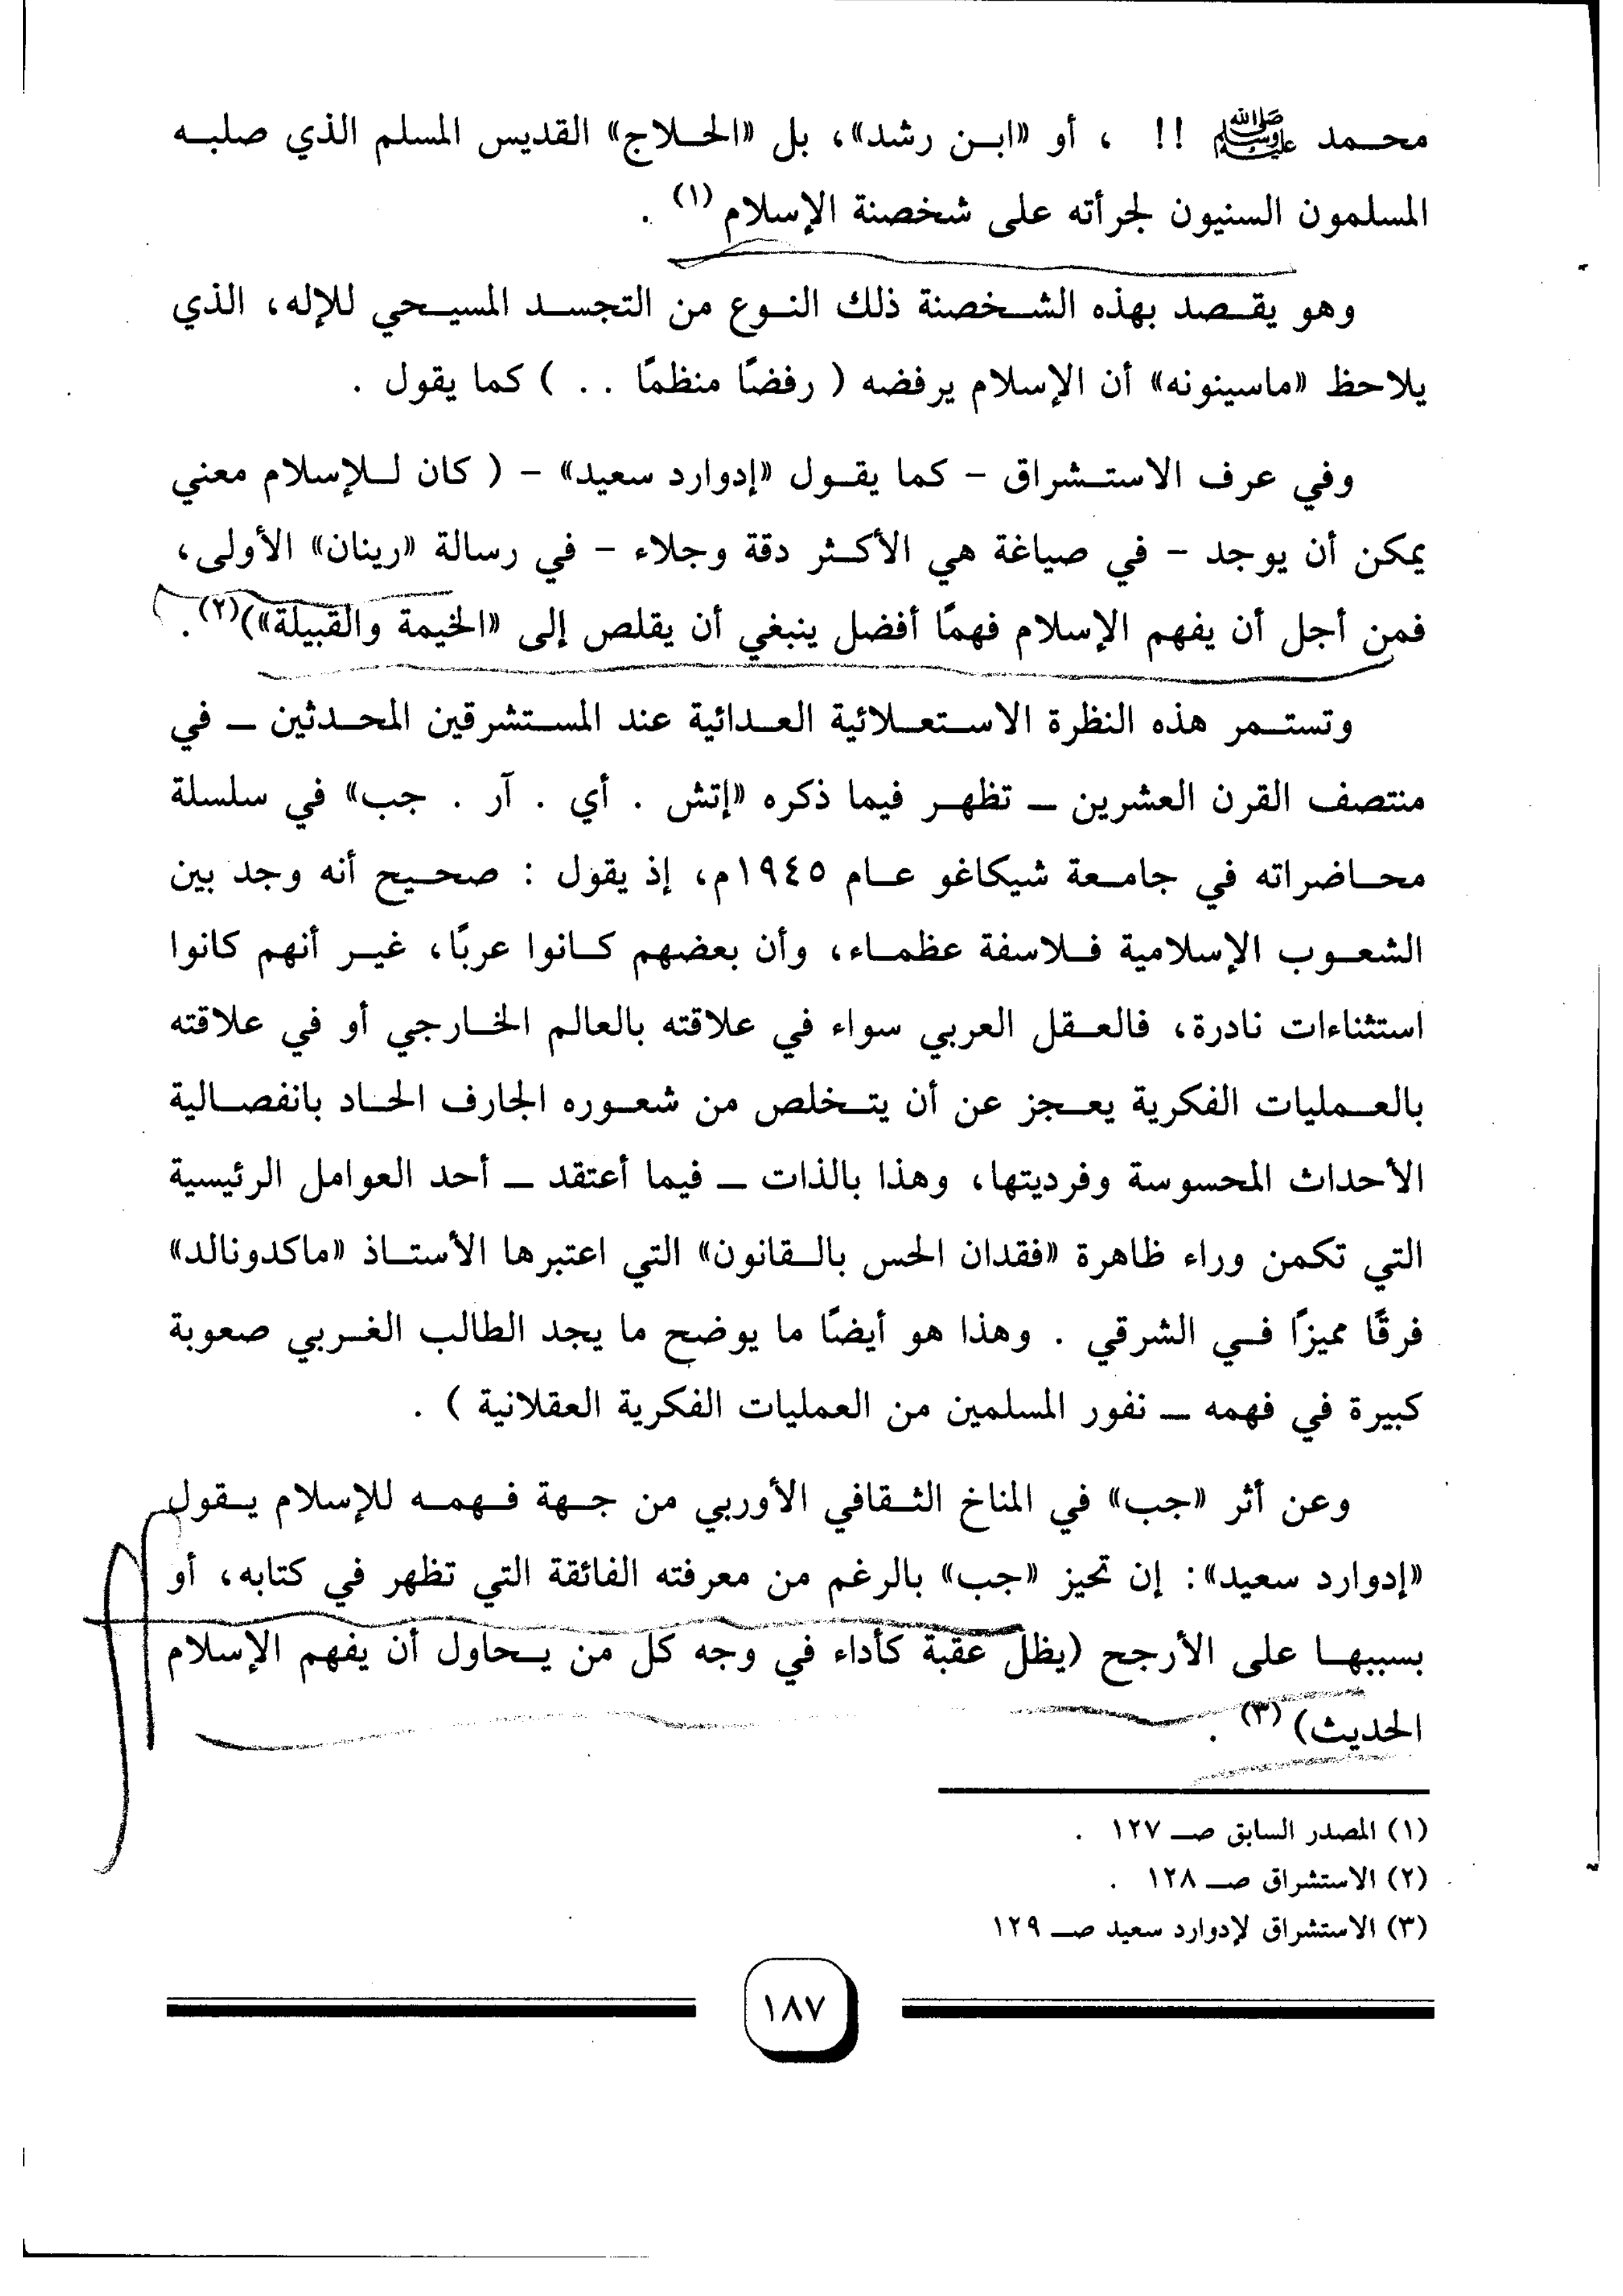 محمد ﷺ !! ، أو «ابن رشد»، بل «الحلاج» القديس المسلم الذي صلبه
المسلمون السنيون لجرأته على شخصنة الإسلام (١) .
وهو يقصد بهذه الشخصنة ذلك النوع من التجسد المسيحي للإله، الذي
يلاحظ «ماسينونه» أن الإسلام يرفضه ( رفضًا منظمًا . . ) كما يقول .
وفي عرف الاستشراق – كما يقول «إدوارد سعيد» – ( كان للإسلام معني
يمكن أن يوجد – في صياغة هي الأكثر دقة وجلاء – في رسالة «رينان» الأولى،
فمن أجل أن يفهم الإسلام فهمًا أفضل ينبغي أن يقلص إلى «الخيمة والقبيلة»)(٢).
وتستمر هذه النظرة الاستعلائية العدائية عند المستشرقين المحدثين – في
منتصف القرن العشرين – تظهر فيما ذكره «إتش . أي . آر . جب» في سلسلة
محاضراته في جامعة شيكاغو عام ١٩٤٥م، إذ يقول : صحيح أنه وجد بين
الشعوب الإسلامية فلاسفة عظماء، وأن بعضهم كانوا عربًا، غير أنهم كانوا
استثناءات نادرة، فالعقل العربي سواء في علاقته بالعالم الخارجي أو في علاقته
بالعمليات الفكرية يعجز عن أن يتخلص من شعوره الجارف الحاد بانفصالية
الأحداث المحسوسة وفرديتها، وهذا بالذات – فيما أعتقد – أحد العوامل الرئيسية
التي تكمن وراء ظاهرة «فقدان الحس بالقانون» التي اعتبرها الأستاذ «ماكدونالد»
فرقًا مميزًا في الشرقي . وهذا هو أيضًا ما يوضح ما يجد الطالب الغربي صعوبة
كبيرة في فهمه – نفور المسلمين من العمليات الفكرية العقلانية ) .
وعن أثر «جب» في المناخ الثقافي الأوربي من جهة فهمه للإسلام يقول
«إدوارد سعيد»: إن تحيز «جب» بالرغم من معرفته الفائقة التي تظهر في كتابه، أو
بسببها على الأرجح (يظل عقبة كأداء في وجه كل من يحاول أن يفهم الإسلام
الحديث) (٣) .
(١) المصدر السابق صـ ١٢٧ .
(٢) الاستشراق صـ ١٢٨ .
(٣) الاستشراق لإدوارد سعيد صـ ١٢٩
١٨٧